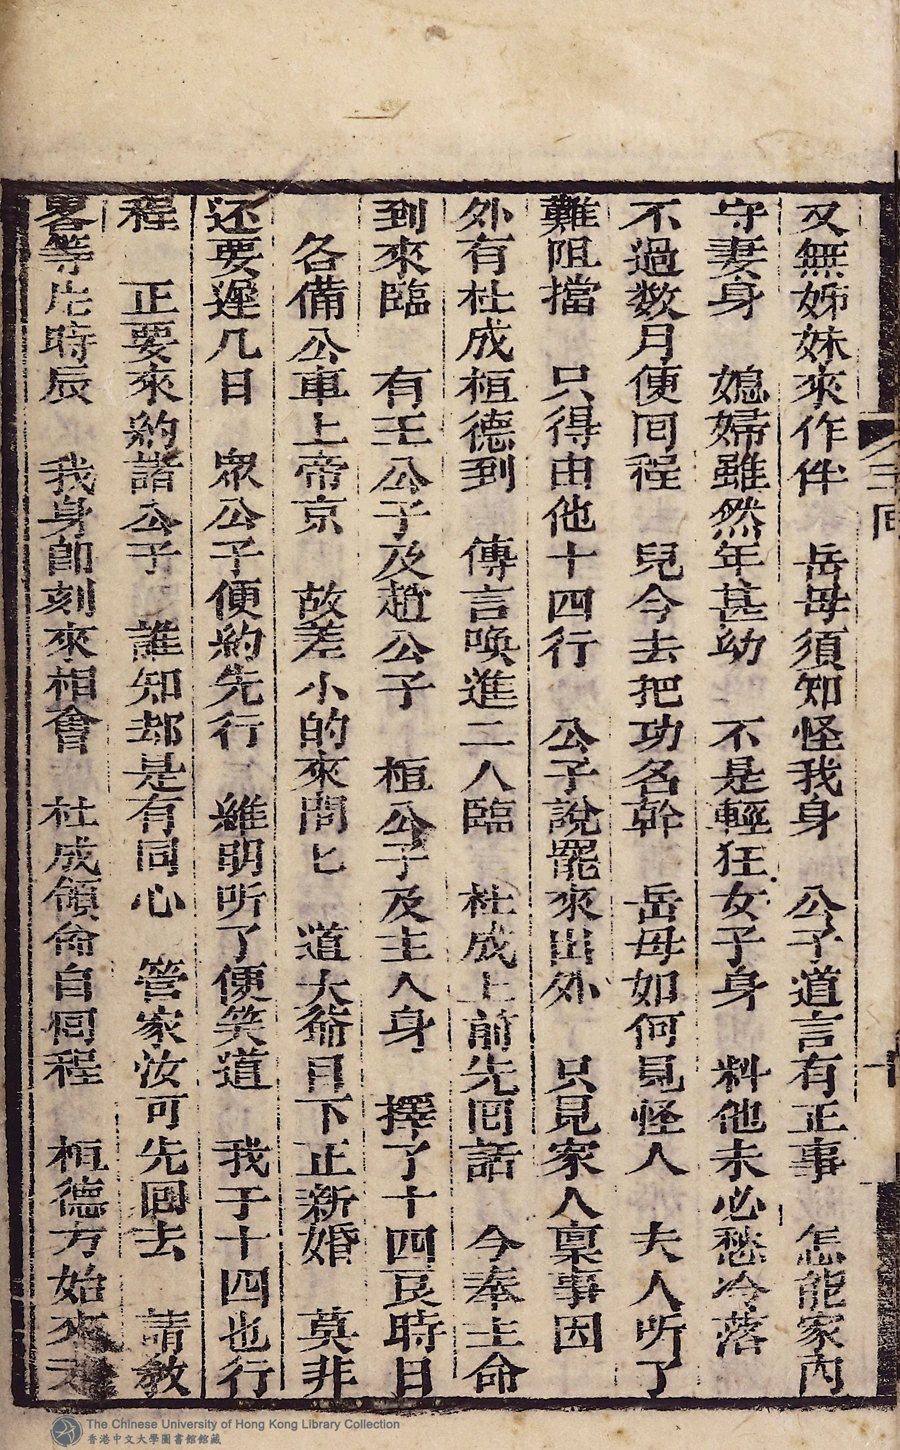 又無姊妹來作伴　岳母須知怪我身　公子道言有正事　怎能家內
守妻身　媳婦雖然年甚幼　不是輕狂女子身　料他未必愁冷落
不過数月便囘程　兒今去把功名幹　岳母如何見怪人　夫人听了
難阻擋　只得由他十四行　公子說罷來出外　只見家人稟事因
外有杜成桓德到　傳言喚進二人臨　杜成上前先囘話　今奉主命
到來臨　有王公子及趙公子　桓公子及主人身　擇了十四良時日
各備公車上帝京　故差小的來問匕　道大爺目下正新婚　莫非
还要遲几日　眾公子便約先行　維明听了便笑道　我于十四也行
程　正要來約諸公子　誰知却是有同心　管家汝可先囘去　請教
畧等片時辰　我身即刻來相會　杜成領命自囘程　桓德方始來
三囘
十
The Chinese University of Hong Kong Library Collection
香港中文大學圖書館館藏